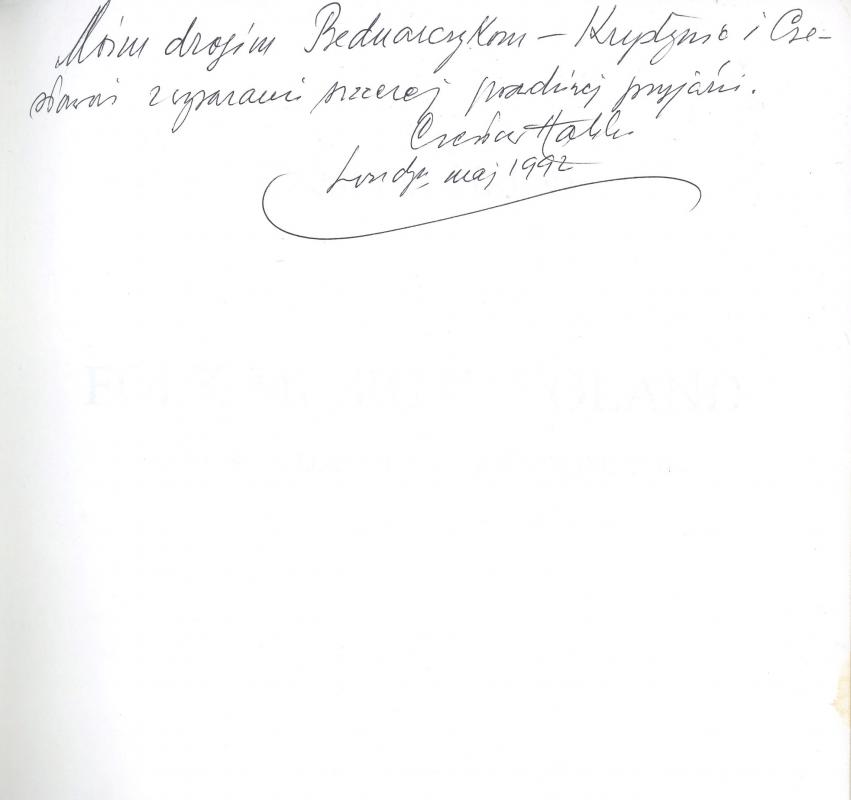 Moim drogim Bednarczykom – Krystynie i Cze-
sławowi z wyrazami szczerej prawdziwej przyjaźni.
Czesław Halski
Londyn, maj 1992